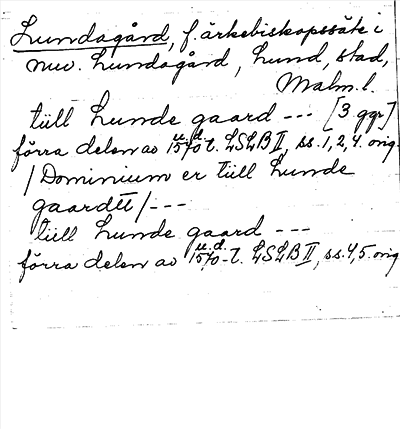 Lundagård, f. ärkebiskopssäte i
nuv. Lundagård, Lund, stad,
Malm. l.
tüll Lunde gaard --- [3 ggr]
u.d.
förra delen av 1570-t. LSLB II, ss. 1, 2, 4. orig.
/Dominium er tüll Lunde
gaardtt/---
tüll Lunde gaard ---
u.d.
förra delen av 1570-t. LSLB II, ss. 4, 5. orig